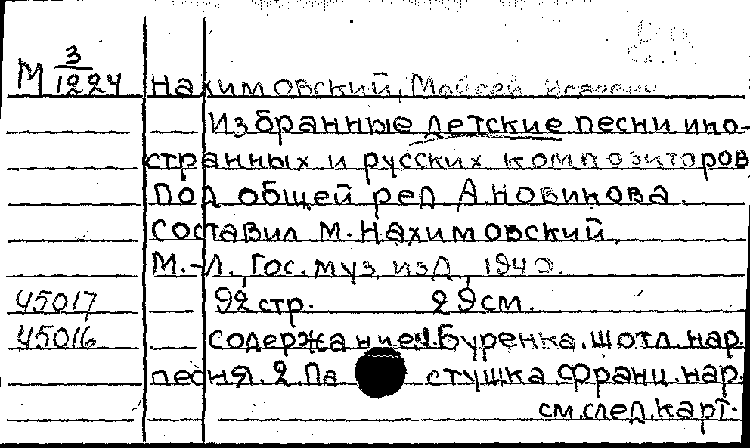 М 3/1224 Нахимовский, Моисей Исаевич
Избранные детские песни ино-
странных и русских композиторов
под общей ред А. Новикова.
Составил М. Нахимовский.
М.-Л., Гос. муз. изд, 1940.
45017 92 стр. 29 см.
45016 Содержание: 1. Буренка. Шотл. нар.
песня. 2. Па стушка Франц. нар.
см. след. карт.